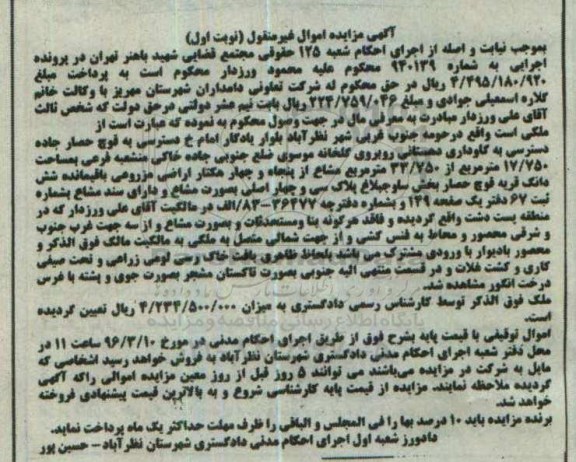 آگهی مزایده اموال غیرمنقول (نوبت اول)
بموجب نیابت و اصله از اجرای احکام شعبه ۱۲۵ حقوقی مجتمع قضایی شهید باهنر تهران در پرونده
اجرایی به شماره ۹۴۰۱۳۹ محکوم علیه محمود ورزدار محکوم است به پرداخت مبلغ
۴/۴۹۵/۱۸۰/۹۲۰ ریال در حق محکوم له شرکت تعاونی دامداران شهرستان مهریز با وکالت خانم
گلاره اسمعیلی جوادی و مبلغ ۲۲۴/۷۵۹/۰۴۶ ریال بابت نیم عشر دولتی درحق دولت که شخص ثالث
آقای علی ورزدار مبادرت به معرفی مال در جهت وصول محکوم به نموده که عبارت است از
ملکی است واقع درحومه جنوب غربی شهر نظرآباد بلوار یادگار امام خ دسترسی به قوچ حصار جاده
دسترسی به گاوداری دهستانی روبروی گلخانه موسوی ضلع جنوبی جاده خاکی منشعبه فرعی بمساحت
۱۷/۷۵۰ مترمربع از ۳۳/۷۵۰ مترمربع مشاع از پنجاه و چهار هکتار اراضی مزروعی باقیمانده شش
دانگ قریه قوچ حصار بخش ساوجبلاغ پلاک سی و چهار اصلی بصورت مشاع و دارای سند مشاع بشماره
ثبت ۶۷ دفتر یک صفحه ۱۴۹ و بشماره دفترچه ۳۶۴۷۷-۸۳/الف در مالکیت آقای علی ورزدار که در
منطقه پست دشت واقع گردیده و فاقد هرگونه بنا ومستحدثات و بصورت مشاع و از سه جهت غرب جنوب
و شرقی محصور و محاط به فنس کشی و از جهت شمالی متصل به ملکی به مالکیت مالک فوق الذکر و
محصور بادیوار با ورودی مشترک می باشد بلحاظ ظاهری بافت خاک رسی لومی زراعی و تحت صیفی
کاری و کشت غلات و در قسمت منتهی الیه جنوبی بصورت تاکستان مشجر بصورت جوی و پشته با غرس
درخت انگور مشاهده شد.
ملک فوق الذکر توسط کارشناس رسمی دادگستری به میزان ۴/۲۳۴/۵۰۰/۰۰۰ ریال تعیین گردیده
است.
اموال توقیفی با قیمت پایه بشرح فوق از طریق اجرای احکام مدنی در مورخ ۹۶/۳/۱۰ ساعت ۱۱ در
محل دفتر شعبه اجرای احکام مدنی دادگستری شهرستان نظرآباد به فروش خواهد رسید اشخاصی که
مایل به شرکت در مزایده می‌باشند می توانند ۵ روز قبل از روز معین مزایده اموالی راکه آگهی
گردیده ملاحظه نمایند. مزایده از قیمت پایه کارشناسی شروع و به بالاترین قیمت پیشنهادی فروخته
خواهد شد.
برنده مزایده باید ۱۰ درصد بها را فی المجلس و الباقی را ظرف مهلت حداکثر یک ماه پرداخت نماید.
دادورز شعبه اول اجرای احکام مدنی دادگستری شهرستان نظرآباد – حسین پور